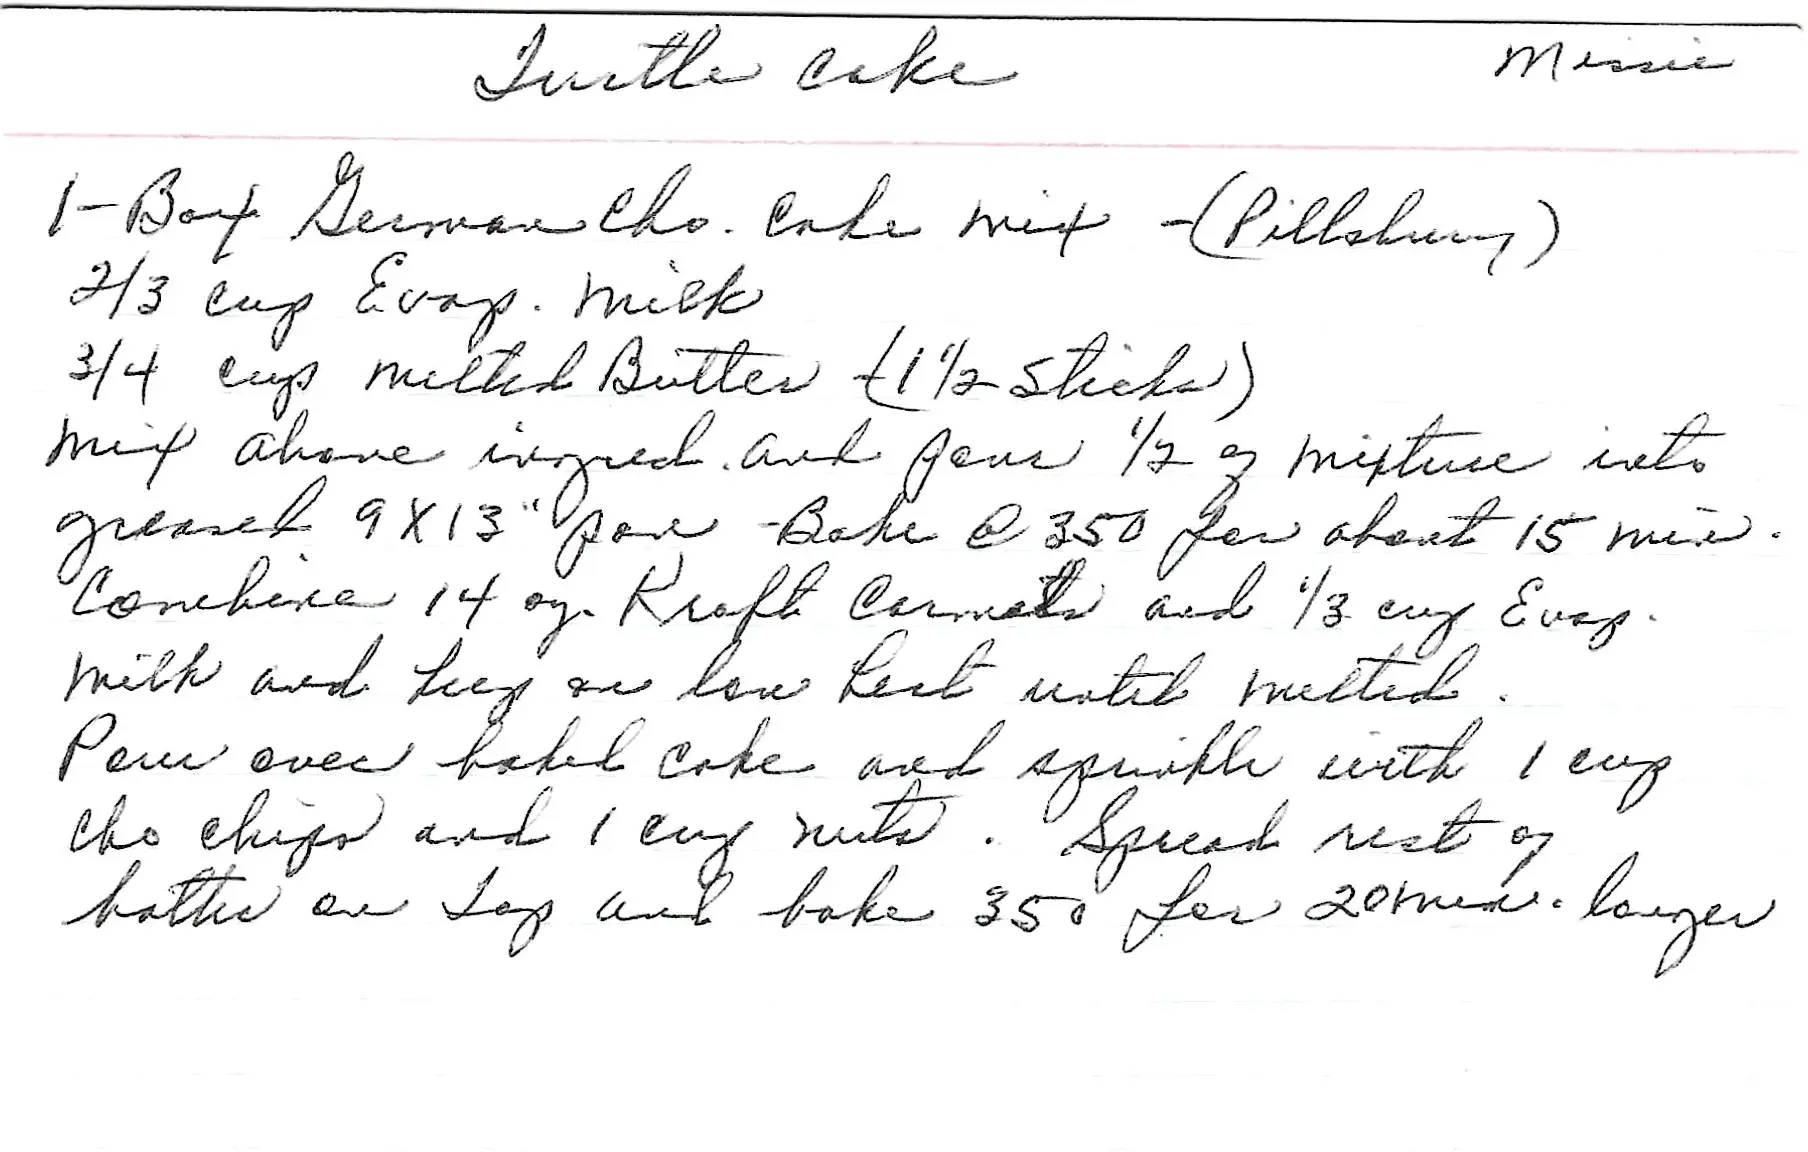 Turtle Cake Missie
1-Box German Cho. Cake Mix - (Pillsbury)
2/3 cup Evap. Milk
3/4 cup Melted Butter (1 1/2 Sticks)
Mix above ingred. and pour 1/2 of mixture into
greased 9X13" pan - Bake @ 350 for about 15 min.
Combine 14 oz. Kraft Carmels and 1/3 cup Evap.
Milk and keep on low heat until melted.
Pour over baked cake and sprinkle with 1 cup
cho chips and 1 cup nuts. Spread rest of
batter on top and bake 350 for 20 min. longer